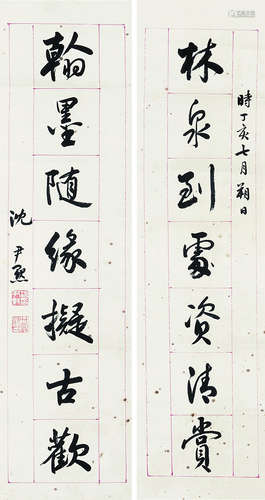 林泉到處資清賞
時丁亥七月朔日
翰墨随緣擬古歡
沈尹默